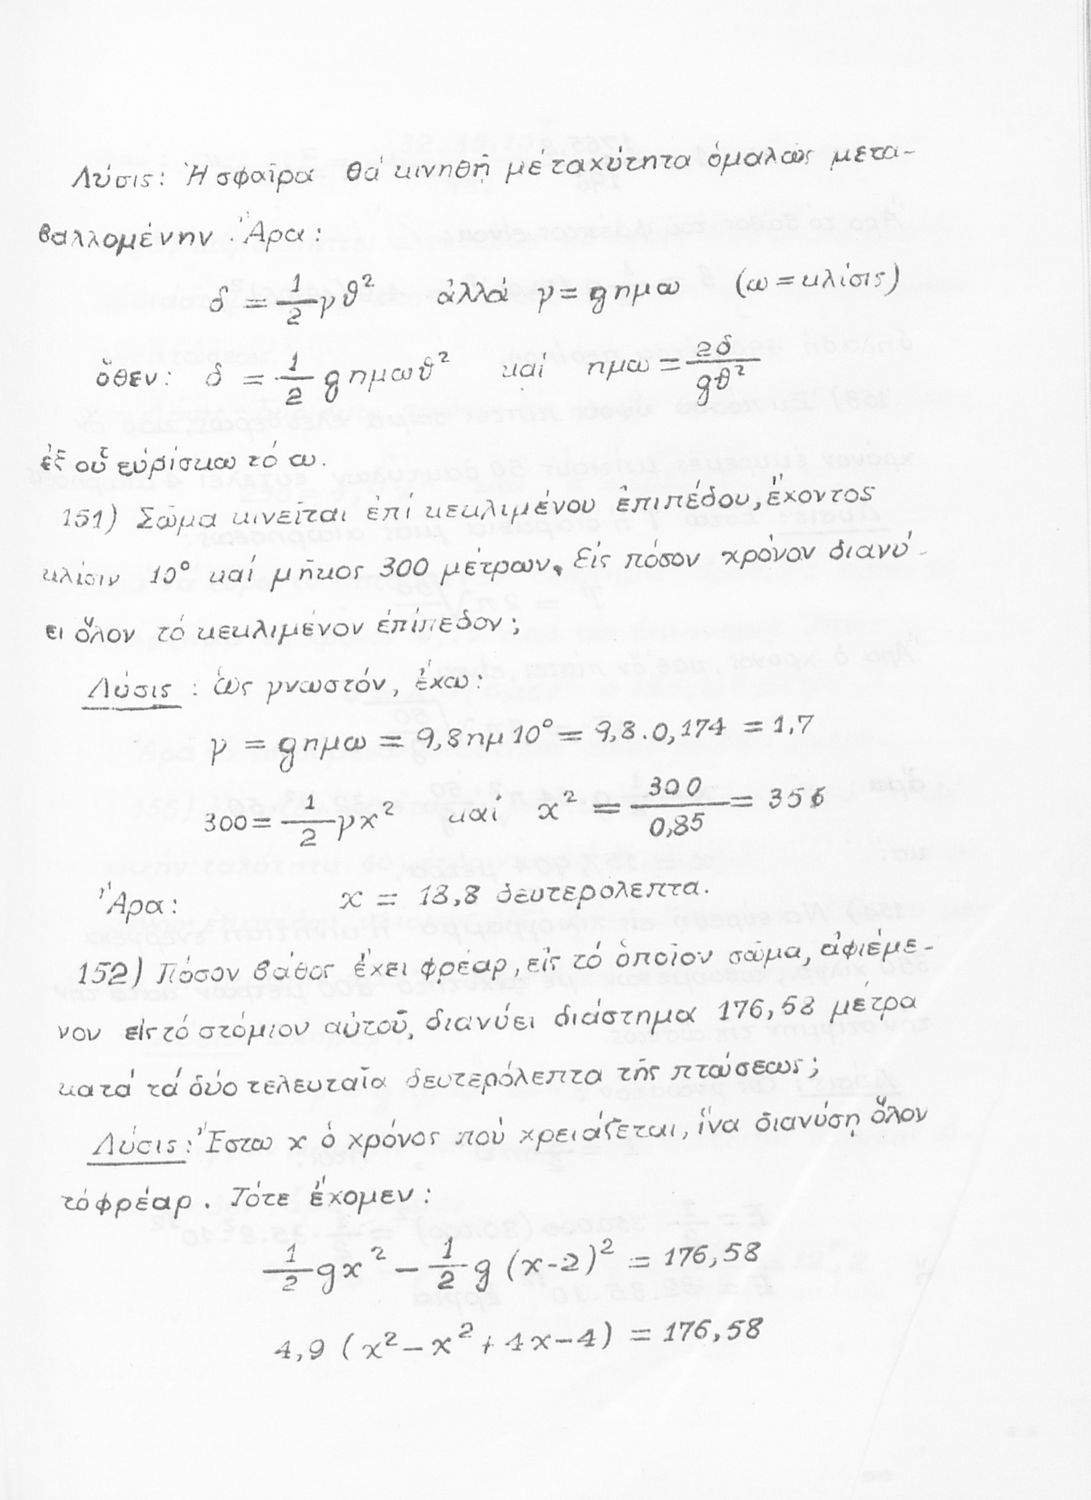 Λύσις: Ἡ σφαῖρα θά κινηθῇ μέ ταχύτητα ὁμαλῶς μετα-
βαλλομένην. Ἄρα:
δ = 1/2 γϑ² ἀλλά γ = gημω (ω = κλίσις)
ὅθεν: δ = 1/2 gημωϑ² καί ημω = 2δ/gϑ²
ἐξ οὗ εὑρίσκω τό ω.
151) Σῶμα κινεῖται ἐπί κεκλιμένου ἐπιπέδου, ἔχοντος
κλίσιν 10° καί μῆκος 300 μέτρων. Εἰς πόσον χρόνον διανύ-
ει ὅλον τό κεκλιμένον ἐπίπεδον;
Λύσις: ὡς γνωστόν, ἔχω:
γ = gημω = 9,8ημ10° = 9,8.0,174 = 1,7
300 = 1/2 γx² καί x² = 300/0,85 = 356
Ἄρα: x = 18,8 δευτερόλεπτα.
152) Πόσον βάθος ἔχει φρέαρ, εἰς τό ὁποῖον σῶμα, ἀφιέμε-
νον εἰς τό στόμιον αὐτοῦ, διανύει διάστημα 176,58 μέτρα
κατά τά δύο τελευταῖα δευτερόλεπτα τῆς πτώσεως;
Λύσις: Ἔστω x ὁ χρόνος πού χρειάζεται, ἵνα διανύσῃ ὅλον
τό φρέαρ. Τότε ἔχομεν:
1/2 gx² - 1/2 g (x-2)² = 176,58
4,9 (x² - x² + 4x - 4) = 176,58